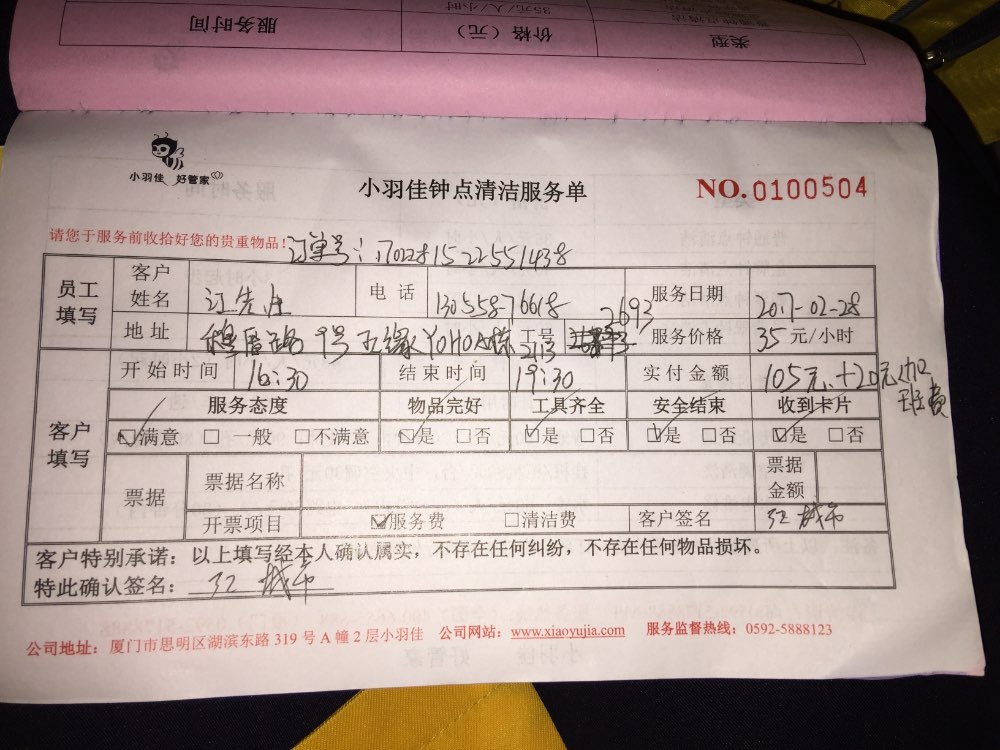 35元/人/小时
类型 价格（元） 服务时间
小羽佳 好管家
小羽佳钟点清洁服务单
NO.0100504
请您于服务前收拾好您的贵重物品！订单号：17022815225551438
员工填写 客户姓名 江先生 电话 13055876618 服务日期 2017-02-28
地址 9号五缘YOHO 工号 2693 服务价格 35元/小时
2113
客户填写 开始时间 16:30 结束时间 19:30 实付金额 105元+20元加班费
服务态度 物品完好 工具齐全 安全结束 收到卡片
☑满意 □一般 □不满意 ☑是 □否 ☑是 □否 ☑是 □否 ☑是 □否
票据 票据名称 票据金额
开票项目 ☑服务费 □清洁费 客户签名 江
客户特别承诺：以上填写经本人确认属实，不存在任何纠纷，不存在任何物品损坏。
特此确认签名：江
公司地址：厦门市思明区湖滨东路319号A幢2层小羽佳 公司网站：www.xiaoyujia.com 服务监督热线：0592-5888123